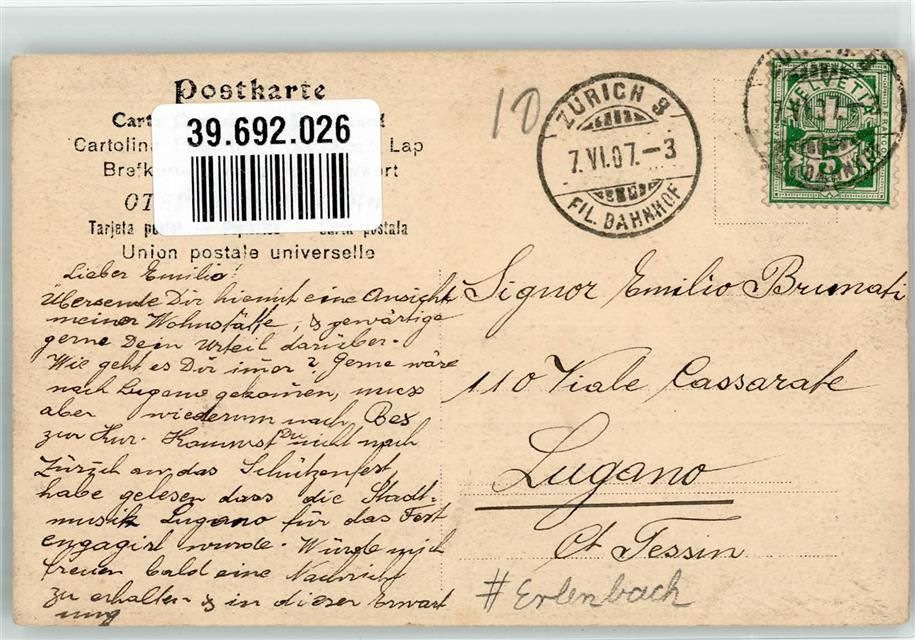 Postkarte
39.692.026
Cart
Cartolina Lap
Brefk ort
Tarjeta po postala
Union postale universelle
10
ZÜRICH 9
7.VI.07.-3
FIL. BAHNHOF
HELVETIA
5
Lieber Emilio!
Übersende Dir hiemit eine Ansicht
meiner Wohnstätte, & gewärtige
gerne Dein Urteil darüber.
Wie geht es Dir imer? Gerne wäre
nach Lugano gekomen, muss
aber wiederum nach Bex
zur Kur. Kommst Du nicht nach
Zürich an das Schützenfest,
habe gelesen dass die Stadt-
musik Lugano für das Fest
engagirt wurde. Würde mich
freuen bald eine Nachricht
zu erhalten & in dieser Erwart
ung
Signor Emilio Brunati
110 Viale Cassarate
Lugano
Ct Tessin
#Erlenbach